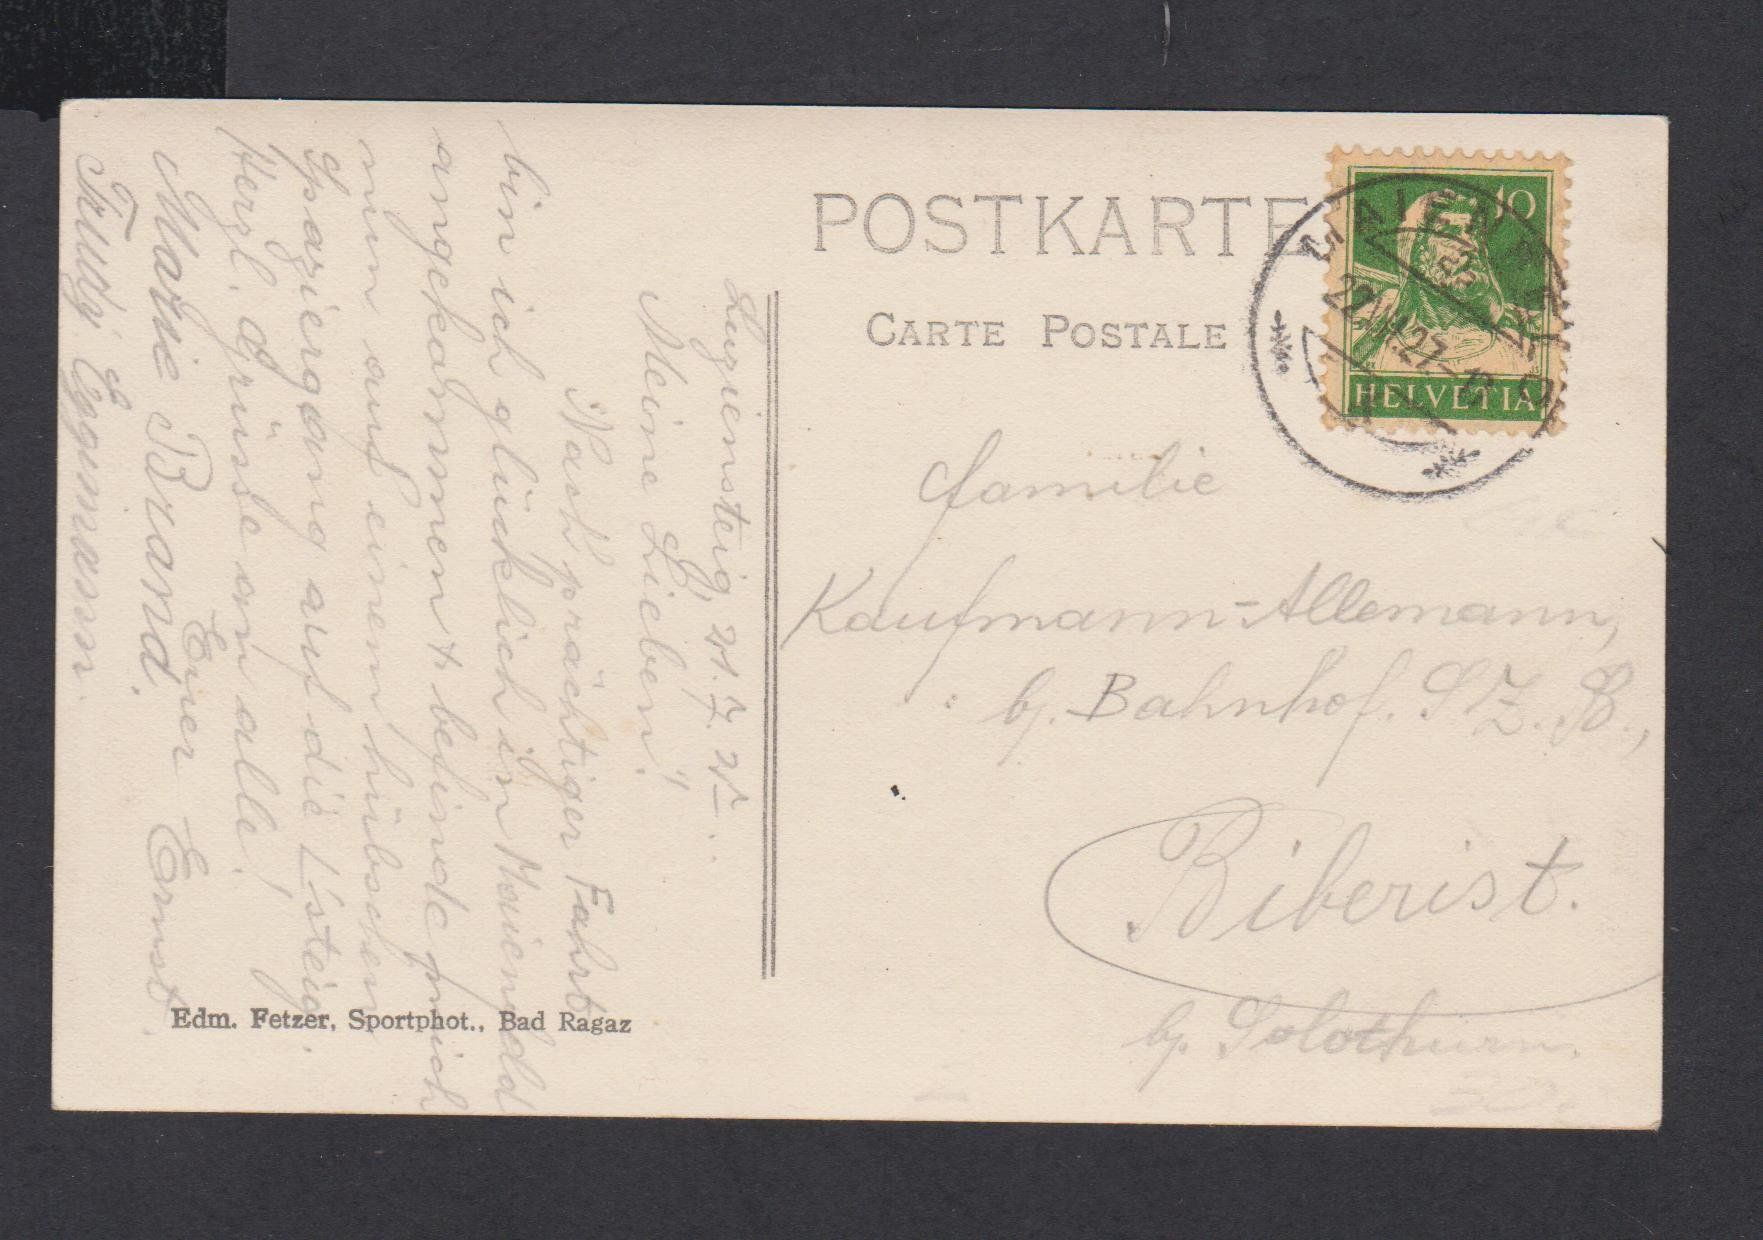 POSTKARTE
CARTE POSTALE
10
MAIENFELD
HELVETIA
Luziensteig, 21. 7. 27.
Meine Lieben!
Nach prächtiger Fahrt
bin ich glücklich in Maienfeld
angekommen & befinde mich
nun auf einem hübschen
Spaziergang auf die L'steig.
Herzl. Grüsse an alle!
Euer Ernst.
Marie Brand.
Trudy Eggimann.
Familie
Kaufmann-Allemann,
b/. Bahnhof. S.Z.B.,
Biberist.
b/. Solothurn.
Edm. Fetzer, Sportphot., Bad Ragaz